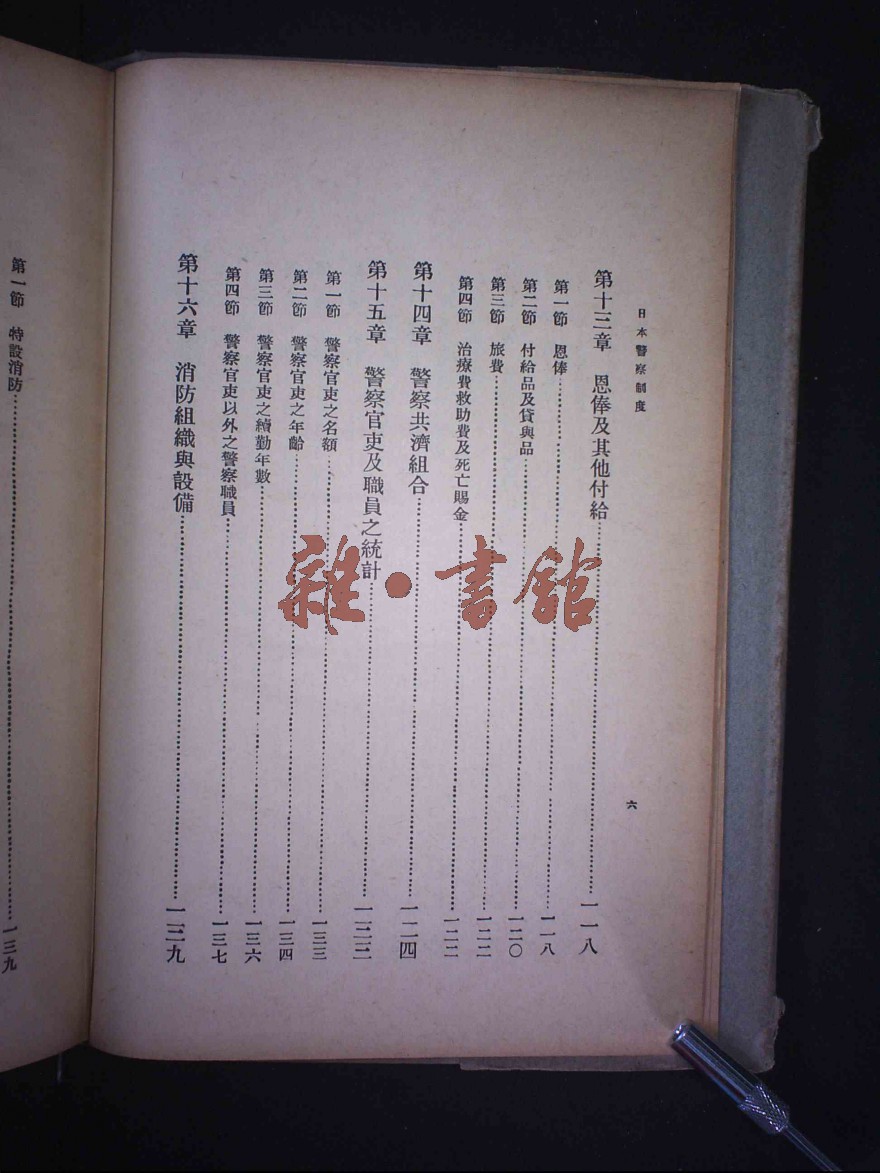 日本警察制度 六
第十三章 恩俸及其他付給……一一八
第一節 恩俸……一一八
第二節 付給品及貸與品……一二〇
第三節 旅費……一二二
第四節 治療費救助費及死亡賜金……一二二
第十四章 警察共濟組合……一二四
第十五章 警察官吏及職員之統計……一三三
第一節 警察官吏之名額……一三三
第二節 警察官吏之年齡……一三四
第三節 警察官吏之續勤年數……一三六
第四節 警察官吏以外之警察職員……一三七
第十六章 消防組織與設備……一三九
第一節 特設消防……一三九
雜·書館